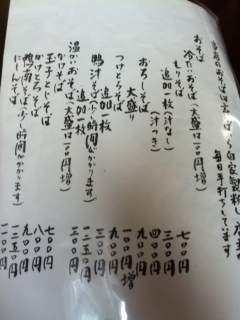 当店のおそば
自家製粉し
毎日手打ちしています
おそば
冷たいおそば(大盛は一〇〇円増)
もりそば 七〇〇円
追加一枚(汁なし) 三〇〇円
追加一枚(汁つき) 四〇〇円
おろしそば 九〇〇円
大盛り 一〇〇円増
つけとろそば 九〇〇円
鴨汁そば(少し時間がかかります) 一二五〇円
追加一枚 三〇〇円
温かいおそば(大盛は一〇〇円増)
かけそば 七〇〇円
玉子としそば 八〇〇円
かけとろそば 九〇〇円
鴨南そば(少し時間がかかります) 一二五〇円
にしんそば 一一〇〇円